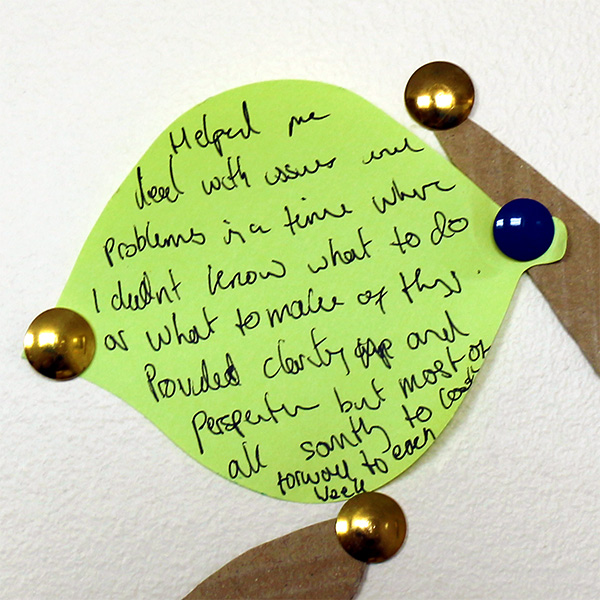 Helped me
deal with issues and
problems in a time where
I didnt know what to do
or what to make of this.
Provided clarity and
perspective but most of
all somthg to look
forward to each
week